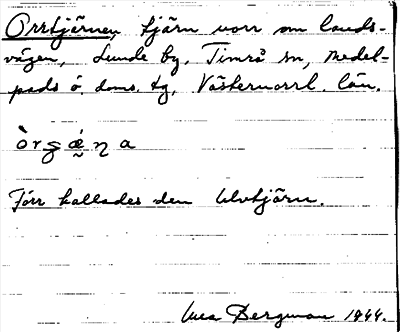 Orrtjärnen tjärn norr om lands-
vägen, Lunde by, Timrå sn, Medel-
pads ö. doms. tg, Västernorrl. län.
Förr kallades den Ulvtjärn.
Bergman 1944.